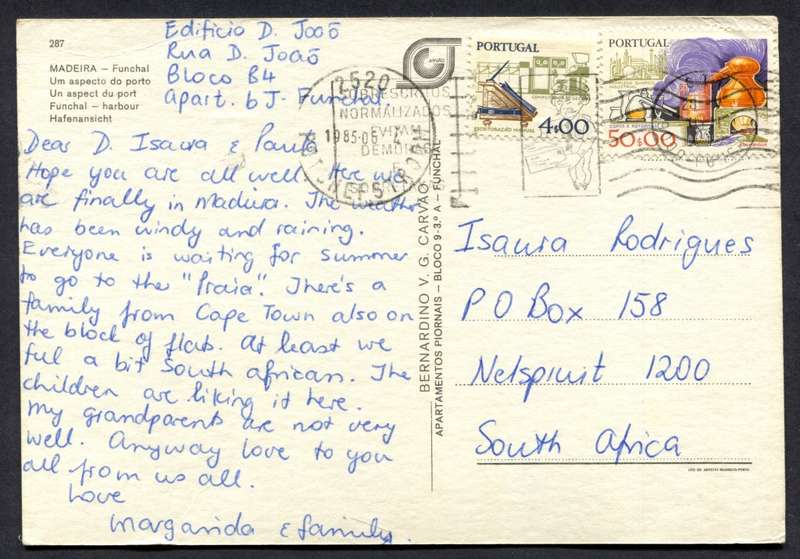 Edificio D. Joaõ
Rua D. Joaõ
Bloco B4
Apart. 6J - Funchal
287
MADEIRA – Funchal
Um aspecto do porto
Un aspect du port
Funchal – harbour
Hafenansicht
Dear D. Isaura & Paulo
Hope you are all well. Here we
are finally in Madeira. The weather
has been windy and raining.
Everyone is waiting for summer
to go to the "Praia". There's a
family from Cape Town also on
the block of flats. At least we
ful a bit South african. The
children are liking it here.
My grandparents are not very
well. Anyway love to you
all from us all.
Love
Margarida & family.
BERNARDINO V. G. CARVÃO
APARTAMENTOS PIORNAIS – BLOCO 9-3.º A – FUNCHAL
PORTUGAL
4$00
PORTUGAL
50$00
2520
NORMALIZADOS
EVITAM
1985-06
Isaura Rodrigues
P O Box 158
Nelspruit 1200
South Africa